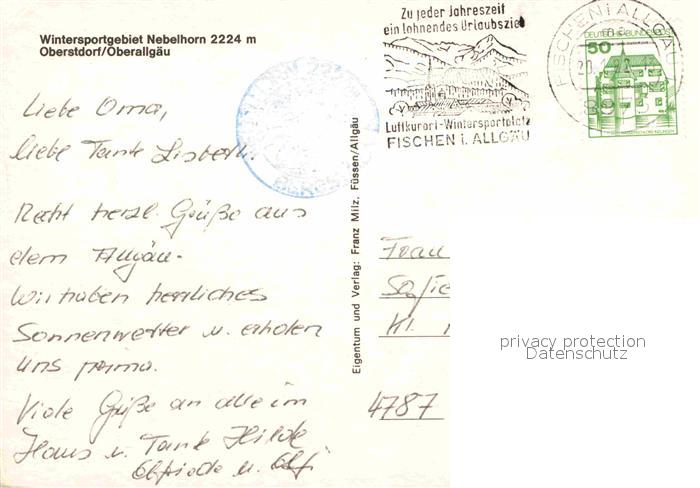 Wintersportgebiet Nebelhorn 2224 m
Oberstdorf/Oberallgäu
Liebe Oma,
liebe Tante Lisbeth.
Recht herzl. Grüße aus
dem Allgäu.
Wir haben herrliches
Sonnenwetter u. erholen
uns prima.
Viele Grüße an alle im
Haus u. Tante Hilde
Elfriede u.
Eigentum und Verlag: Franz Milz, Füssen/Allgäu
Zu jeder Jahreszeit
ein lohnendes Urlaubsziel
Luftkurort-Wintersportplatz
FISCHEN i. ALLGÄU
FISCHEN i ALLGÄU
DEUTSCHE BUNDESPOST
50
Frau
Sofie
Kl.
4787
privacy protection
Datenschutz